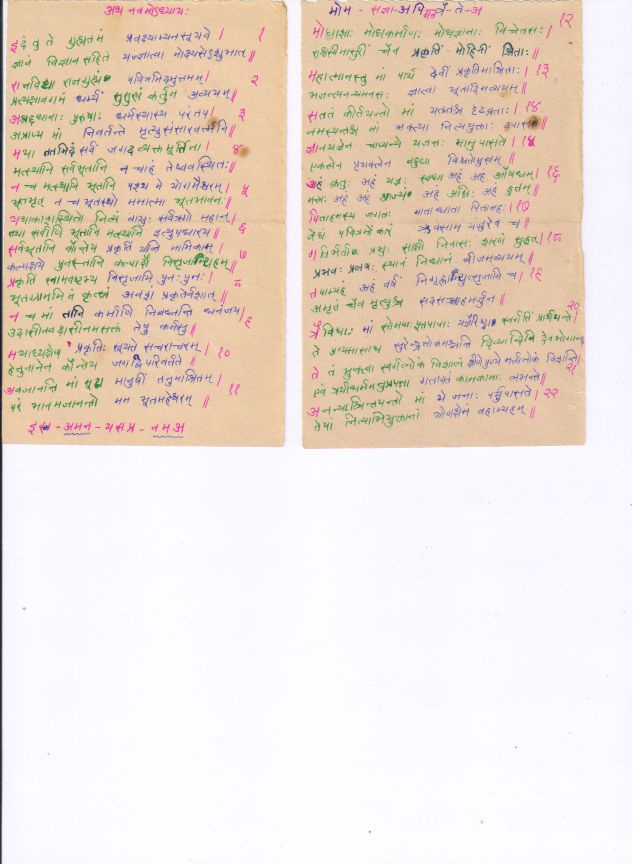 अथ नवमोऽध्यायः
इदं तु ते गुह्यतमं प्रवक्ष्याम्यनसूयवे । १
ज्ञानं विज्ञानसहितं यज्ज्ञात्वा मोक्ष्यसेऽशुभात् ॥
राजविद्या राजगुह्यं पवित्रमिदमुत्तमम् । २
प्रत्यक्षावगमं धर्म्यं सुसुखं कर्तुम अव्ययम् ॥
अश्रद्दधानाः पुरुषाः धर्मस्यास्य परंतप । ३
अप्राप्य मां निवर्तन्ते मृत्युसंसारवर्त्मनि ॥
मया ततमिदं सर्वं जगदव्यक्तमूर्तिना । ४
मत्स्थानि सर्वभूतानि न चाहं तेष्ववस्थितः ॥
न च मत्स्थानि भूतानि पश्य मे योगमैश्वरम् । ५
भूतभृत् न च भूतस्थो ममात्मा भूतभावनः ॥
यथाकाशस्थितो नित्यं वायुः सर्वत्रगो महान् । ६
तथा सर्वाणि भूतानि मत्स्थानि इत्युपधारय ॥
सर्वभूतानि कौन्तेय प्रकृतिं यान्ति मामिकाम् । ७
कल्पक्षये पुनस्तानि कल्पादौ विसृजाम्यहम् ॥
प्रकृतिं स्वामवष्टभ्य विसृजामि पुनः पुनः । ८
भूतग्राममिमं कृत्स्नं अवशं प्रकृतेर्वशात् ॥
न च मां तानि कर्माणि निबध्नन्ति धनंजय । ९
उदासीनवदासीनमसक्तं तेषु कर्मसु ॥
मयाध्यक्षेण प्रकृतिः सूयते सचराचरम् । १०
हेतुनानेन कौन्तेय जगद्विपरिवर्तते ॥
अवजानन्ति मां मूढा मानुषीं तनुमाश्रितम् । ११
परं भावमजानन्तो मम भूतमहेश्वरम् ॥
इरा - अमन - यसप्र - नमअ
मोम - सज्ञा-अपि - तेअ
१२
मोघाशा मोघकर्माणः मोघज्ञानाः विचेतसः ।
राक्षसीमासुरीं चैव प्रकृतिं मोहिनीं श्रिताः ॥
महात्मानस्तु मां पार्थ दैवीं प्रकृतिमाश्रिताः । १३
भजन्त्यनन्यमनसः ज्ञात्वा भूतादिमव्ययम् ॥
सततं कीर्तयन्तो मां यतन्तश्च दृढव्रताः । १४
नमस्यन्तश्च मां भक्त्या नित्ययुक्ताः उपासते
ज्ञानयज्ञेन चाप्यन्ये यजन्तः मामुपासते । १५
एकत्वेन पृथक्त्वेन बहुधा विश्वतोमुखम् ॥
अहं क्रतुः अहं यज्ञः स्वधा अहं अहं औषधम् । १६
मन्त्रः अहं अहं आज्यं अहं अग्निः अहं हुतम् ॥
पिताहमस्य जगतः माता धाता पितामहः । १७
वेद्यं पवित्रमोंकारं ऋक्साम यजुरेव च ॥
गतिर्भर्ता प्रभुः साक्षी निवासः शरणं सुहृत् । १८
प्रभवः प्रलयः स्थानं निधानं बीजमव्ययम् ॥
तपाम्यहं अहं वर्षं निगृह्णाम्युत्सृजामि च । १९
अमृतं चैव मृत्युश्च सदसच्चाहमर्जुन ॥
२०
त्रैविद्याः मां सोमपाः पूतपापाः यज्ञैरिष्ट्वा स्वर्गतिं प्रार्थयन्ते ।
ते पुण्यमासाद्य सुरेन्द्रलोकमश्नन्ति दिव्यान्दिवि देवभोगान्
ते तं भुक्त्वा स्वर्गलोकं विशालं क्षीणे पुण्ये मर्त्यलोकं विशन्ति । २१
एवं त्रयीधर्ममनुप्रपन्ना गतागतं कामकामाः लभन्ते ॥
अनन्याश्चिन्तयन्तो मां ये जनाः पर्युपासते । २२
तेषां नित्याभियुक्तानां योगक्षेमं वहाम्यहम् ॥